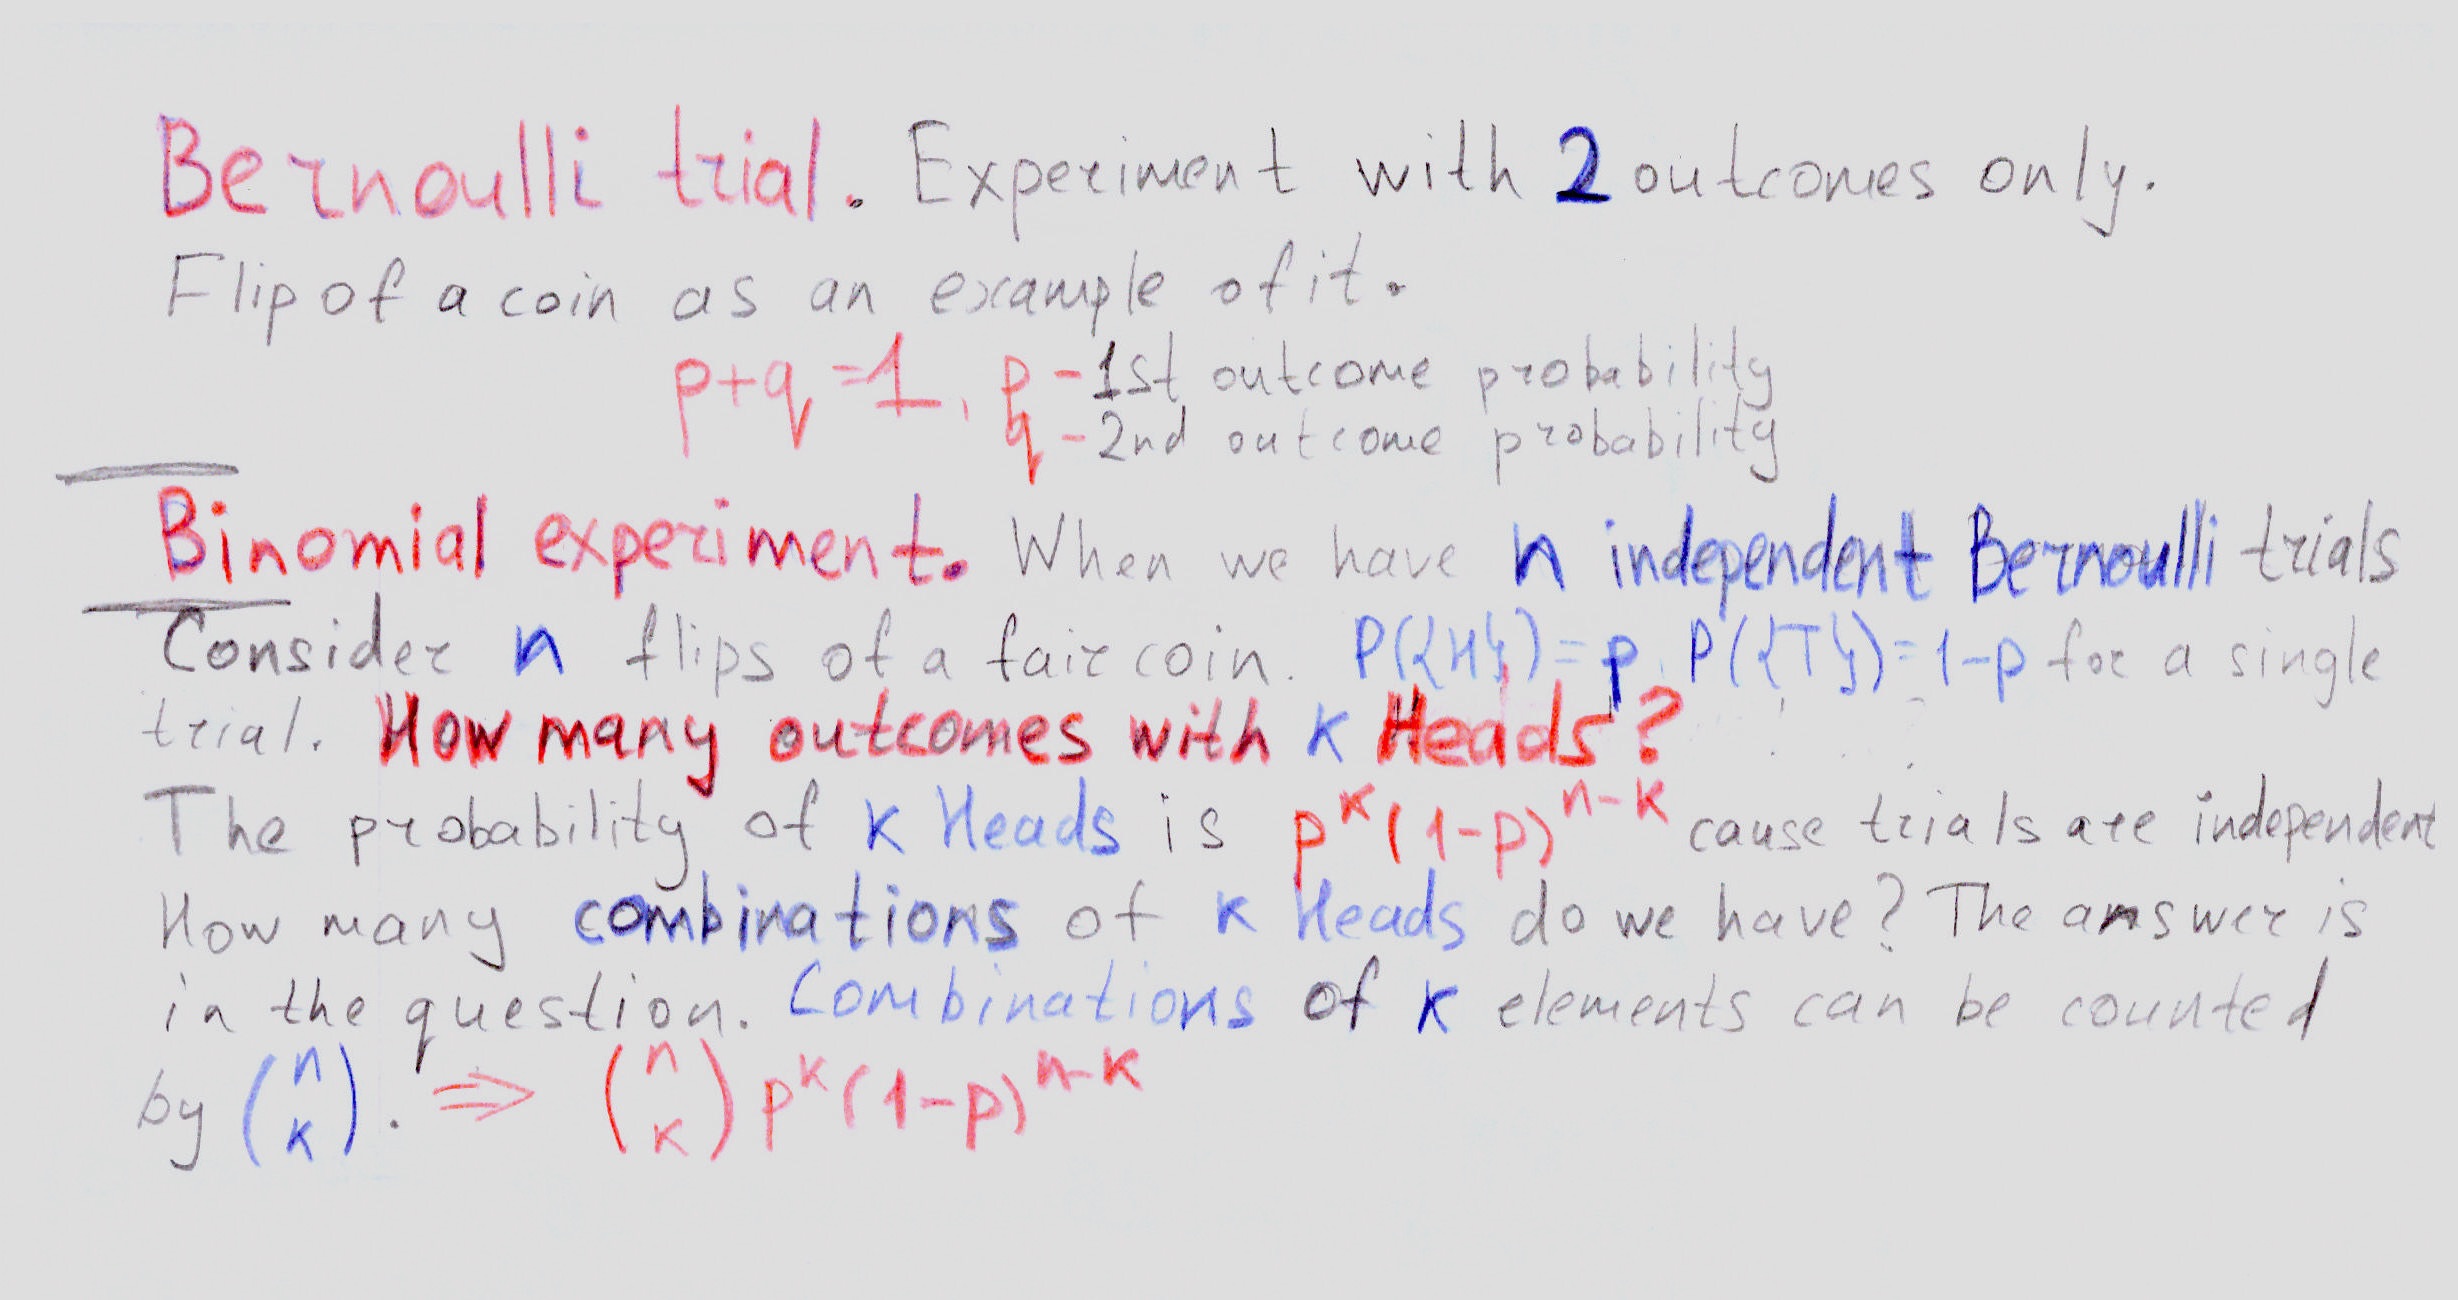 Bernoulli trial. Experiment with 2 outcomes only.
Flip of a coin as an example of it.
p+q=1, p - 1st outcome probability
q - 2nd outcome probability
Binomial experiment. When we have n independent Bernoulli trials
Consider n flips of a fair coin. P({H})=p, P({T})=1-p for a single
trial. How many outcomes with k Heads?
The probability of k Heads is p^k(1-p)^{n-k} cause trials are independent
How many combinations of k Heads do we have? The answer is
in the question. Combinations of k elements can be counted
by (n k). ⇒ (n k) p^k(1-p)^{n-k}